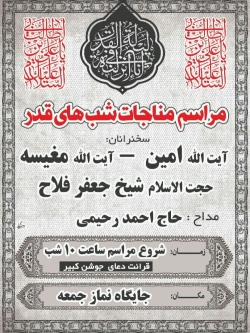 مراسم مناجات شب های قدر
سخنرانان:
آیت الله امین – آیت الله مغیسه
حجت الاسلام شیخ جعفر فلاح
مداح : حاج احمد رحیمی
زمـــان: شروع مراسم ساعت ۱۰ شب
قرائت دعای جوشن کبیر
مکـان: جایگاه نماز جمعه